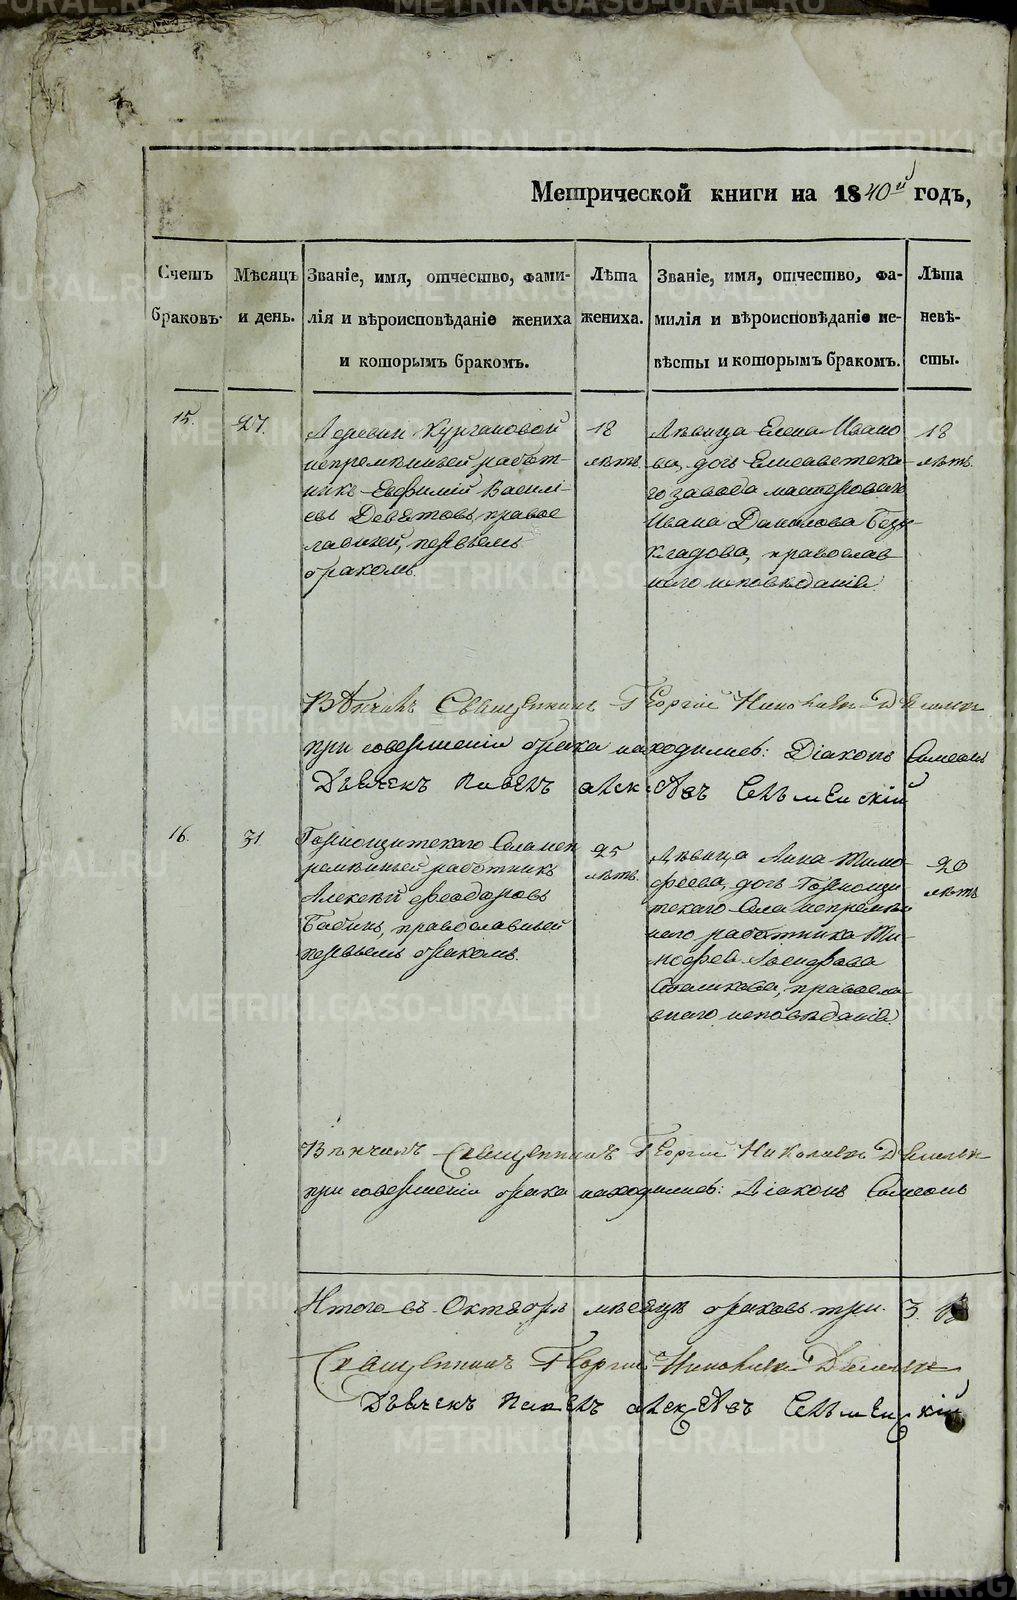 METRIKI.GASO-URAL.RU
Метрической книги на 1840й годъ,
Счетъ браковъ.
Мѣсяцъ и день.
Званіе, имя, отчество, фами-
лія и вѣроисповѣданіе жениха
и которымъ бракомъ.
Лѣта
жениха.
Званіе, имя, отчество, фа-
милія и вѣроисповѣданіе не-
вѣсты и которымъ бракомъ.
Лѣта
невѣ-
сты.
15.
27.
Деревни Кургановой
непремѣнный работ-
никъ Евфимій Василі-
евъ Девятовъ, правос
лавный, первымъ
бракомъ.
18
лѣтъ.
Дѣвица Елена Ивано
ва, дочь Елисаветска
го завода мастероваго
Ивана Данилова
кладова, православ
наго исповѣданія.
18
лѣтъ.
Вѣнчалъ Священникъ Георгій
при совершеніи брака находились: Діаконъ Симеонъ
Дьячекъ Павелъ
16.
31.
Горнощитскаго Села неп
ремѣнный работникъ
Алексѣй Феодоровъ
Бабинъ, православный
первымъ бракомъ.
25
лѣтъ.
Дѣвица Анна Тимо
феева, дочь Горнощи
тскаго Села непремѣн
наго работника Ти-
мофея
православ
наго исповѣданія.
20
лѣтъ
Вѣнчалъ Священникъ Георгій Николаевъ
при совершеніи брака находились: Діаконъ Симеонъ
Итого въ Октябрѣ мѣсяцѣ браковъ три. 3.
Священникъ Георгій
Дьячекъ Павелъ